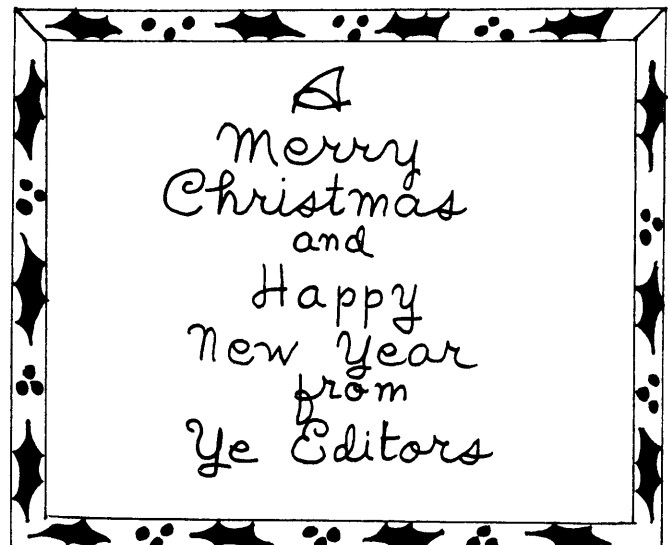 A
Merry
Christmas
and
Happy
New Year
from
Ye Editors